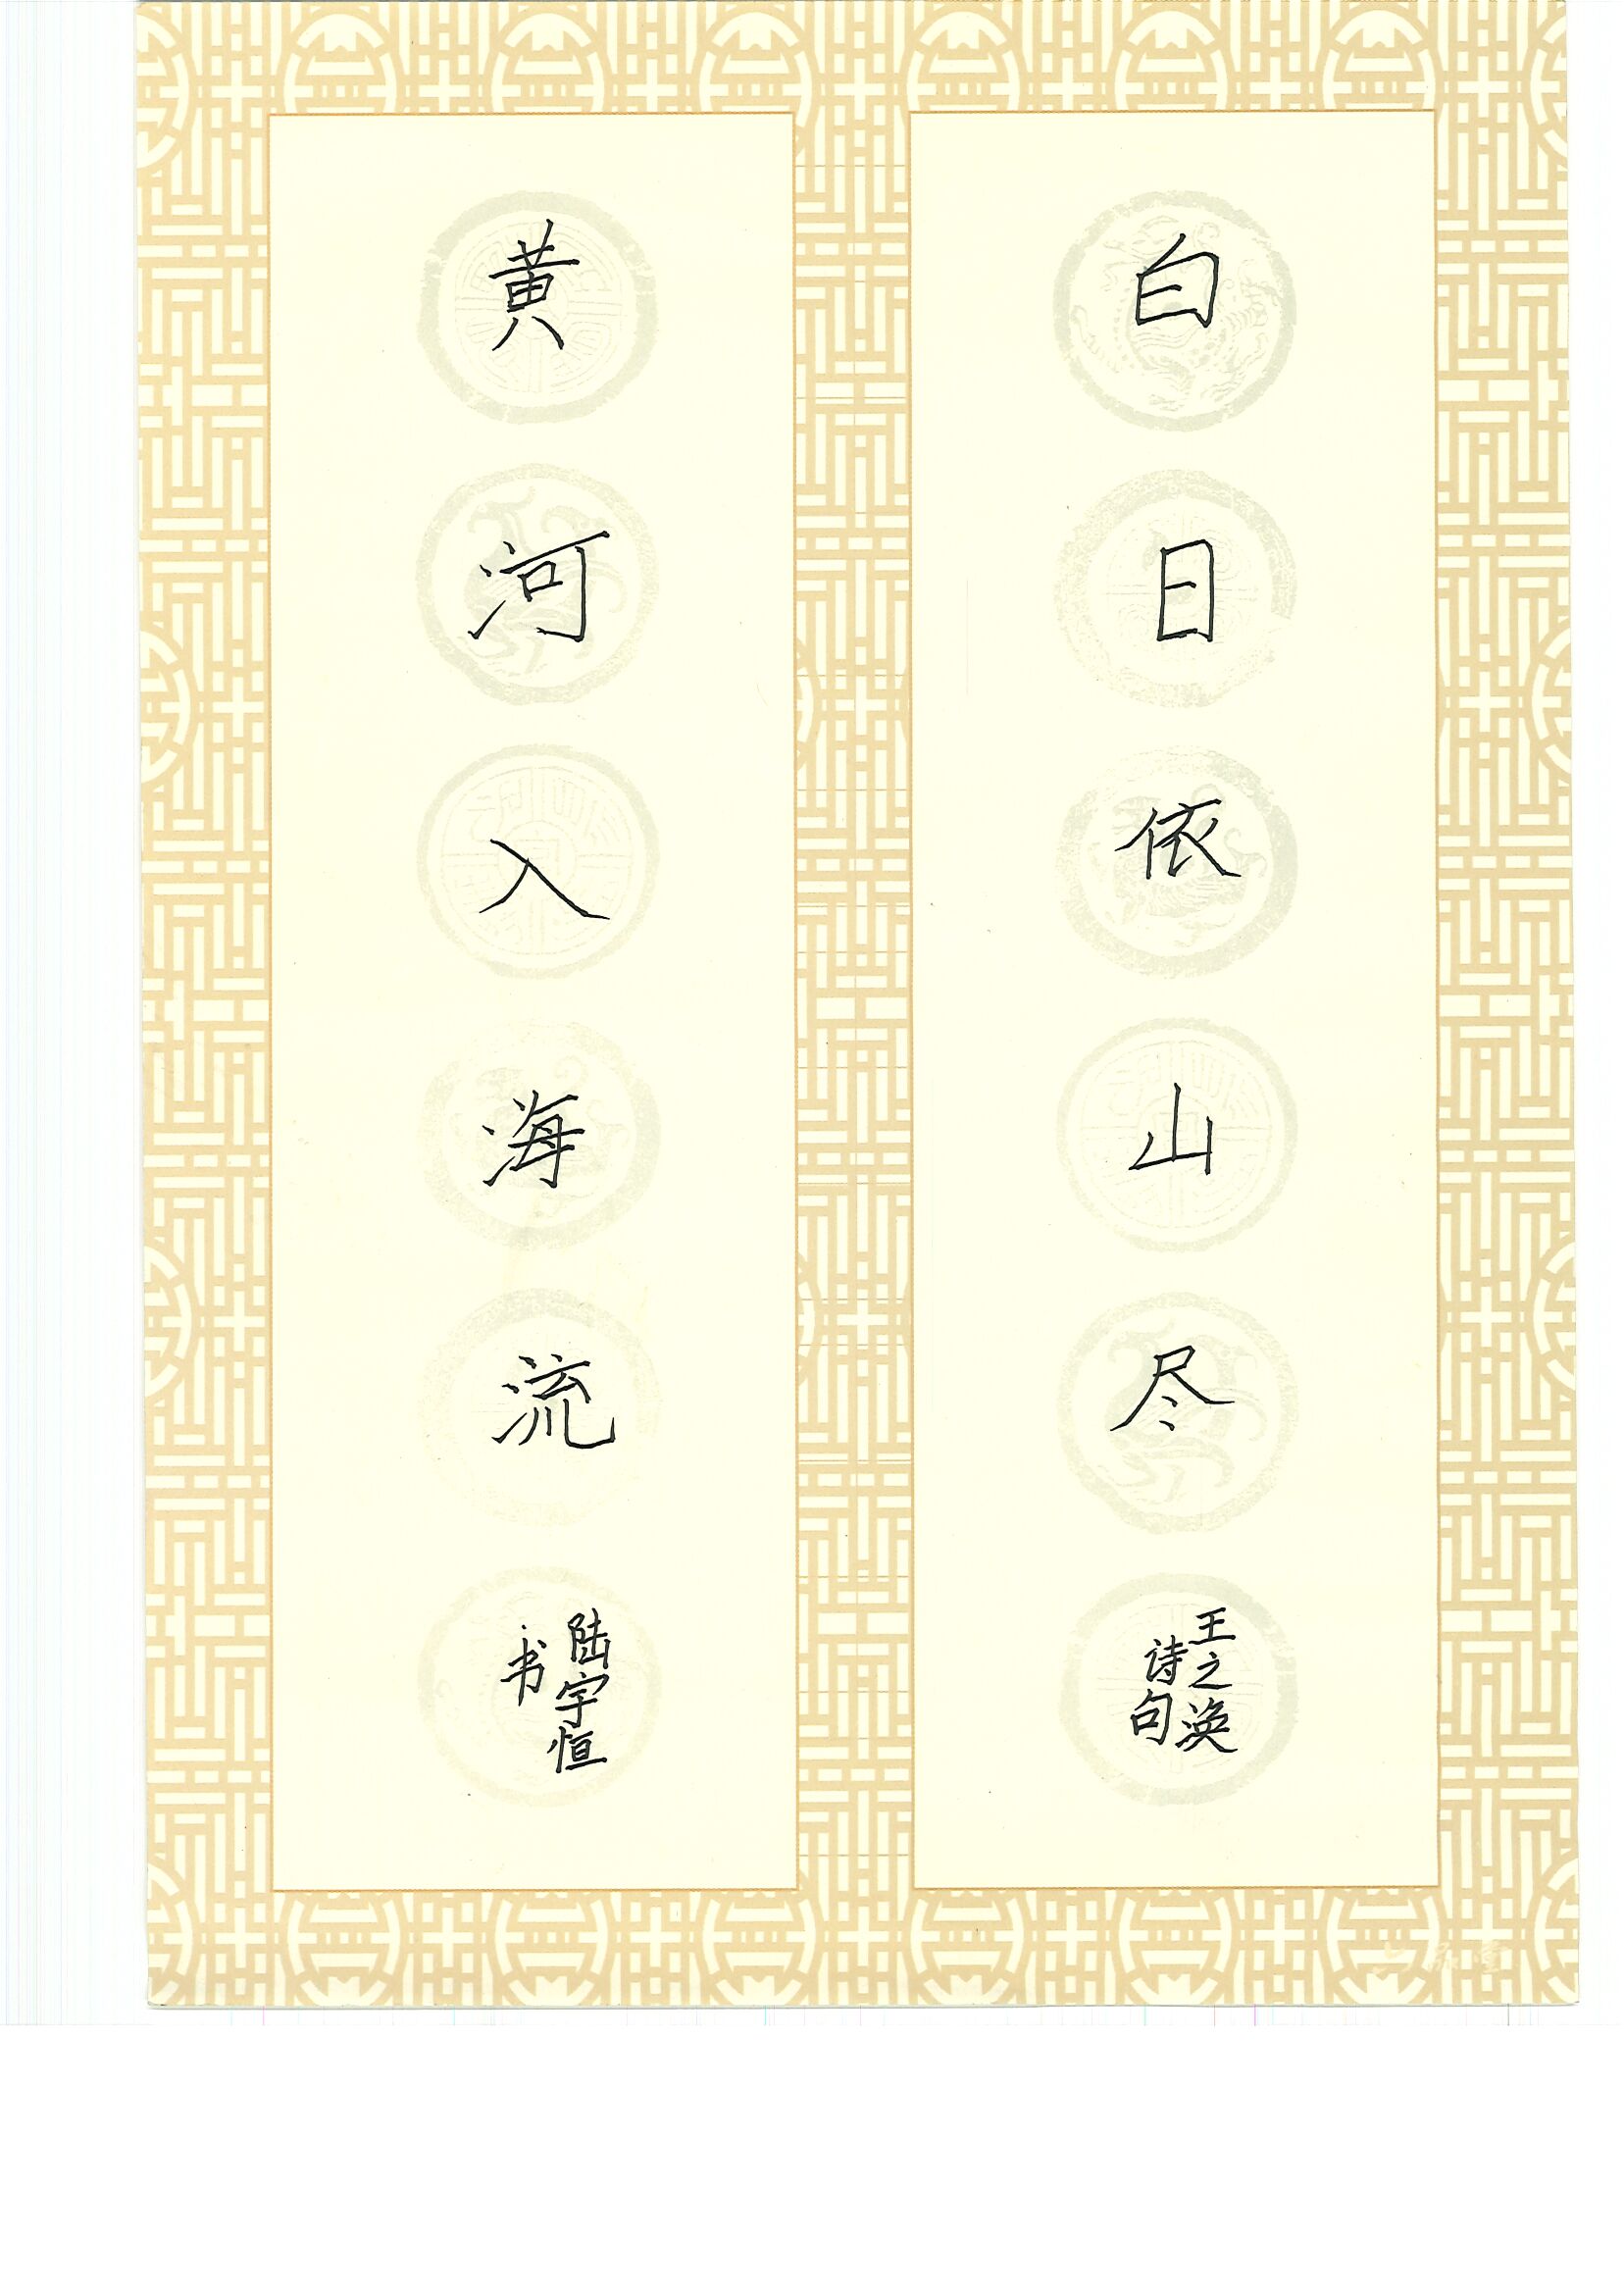 白日依山尽
王之涣
诗句
黄河入海流
陆宇恒
书